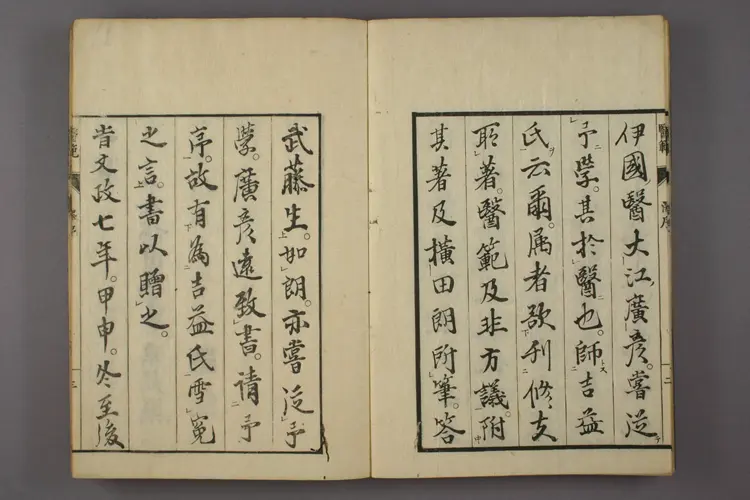 醫範
伊國醫大江廣彥嘗從
予學。其於醫也。師吉益
氏云爾。属者欲刊修
所著。醫範及非方議。附
其著及橫田朗附筆。答
武藤生。如朗。亦嘗從予
學。廣彥遠致書。請予
序。故有為吉益氏雪冤
之言。書以贈之。
旹文政七年。甲申。冬至後